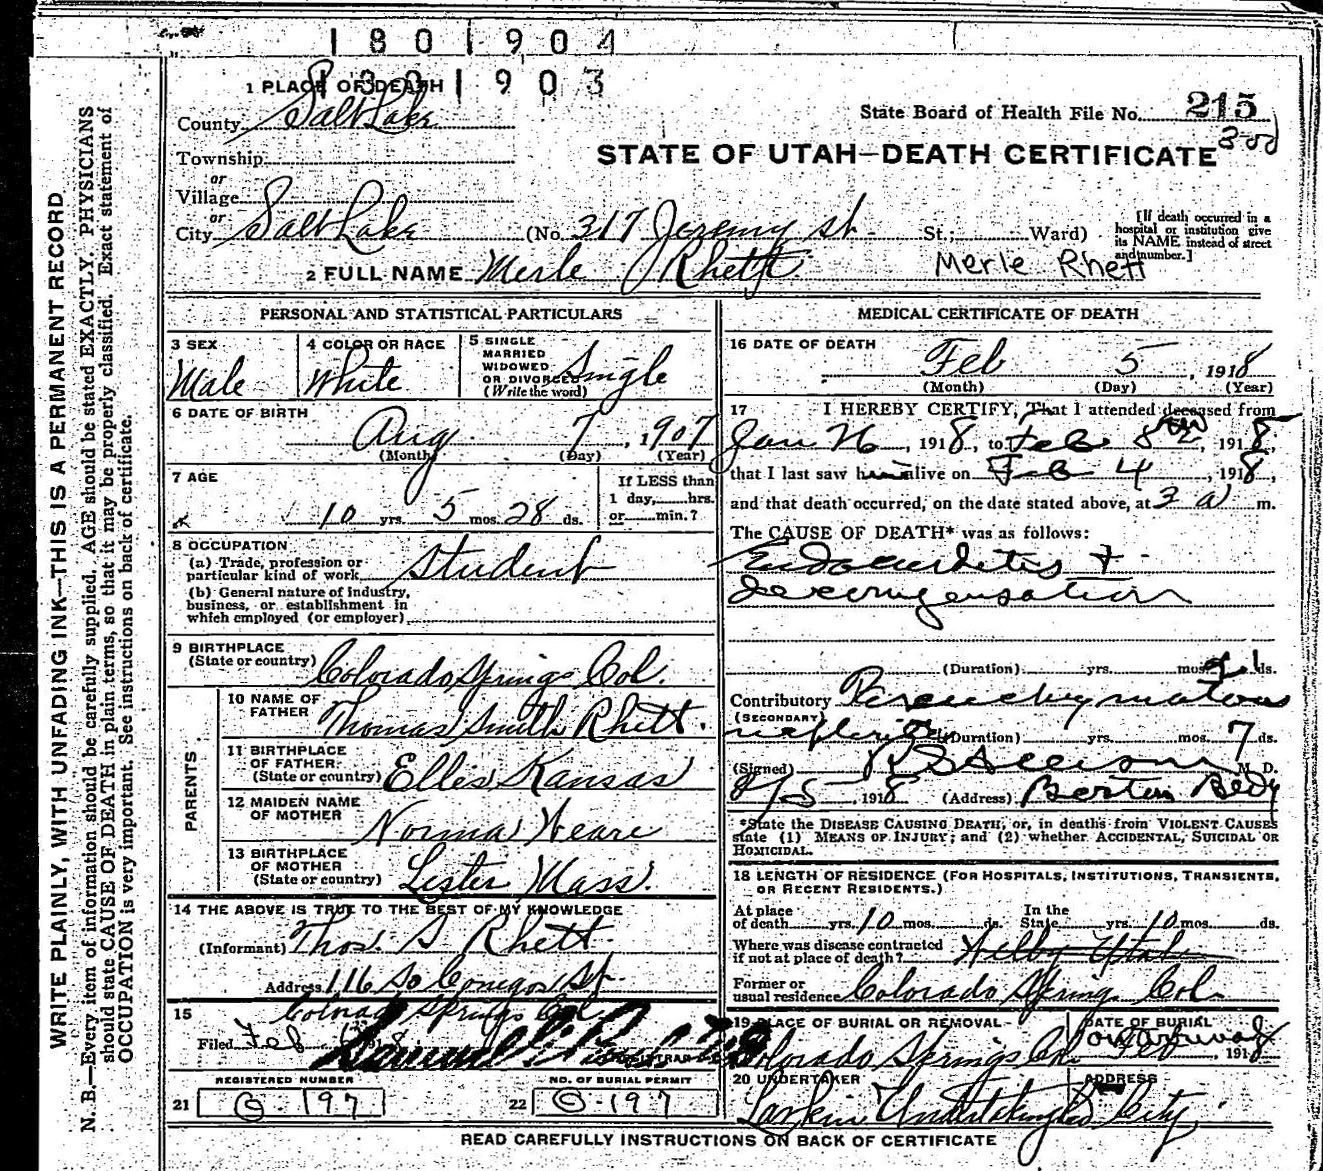 1801904
1801903
1 PLACE OF DEATH
County Salt Lake
State Board of Health File No. 215
Township
STATE OF UTAH—DEATH CERTIFICATE
or
Village
or
City Salt Lake (No. 317 Jeremy st. St.; Ward)
[If death occurred in a hospital or institution give its NAME instead of street and number.]
2 FULL NAME Merle Rhett
Merle Rhett
PERSONAL AND STATISTICAL PARTICULARS
3 SEX
Male
4 COLOR OR RACE
White
5 SINGLE
MARRIED
WIDOWED
OR DIVORCED
(Write the word)
Single
6 DATE OF BIRTH
Aug 7, 1907
(Month) (Day) (Year)
7 AGE
10 yrs. 5 mos. 28 ds.
If LESS than
1 day, hrs.
or min.?
8 OCCUPATION
(a) Trade, profession or
particular kind of work Student
(b) General nature of industry,
business, or establishment in
which employed (or employer)
9 BIRTHPLACE
(State or country) Colorado Springs Col.
PARENTS
10 NAME OF
FATHER Thomas Smith Rhett.
11 BIRTHPLACE
OF FATHER
(State or country) Ellis Kansas
12 MAIDEN NAME
OF MOTHER Norma Weare
13 BIRTHPLACE
OF MOTHER
(State or country) Lester Mass.
14 THE ABOVE IS TRUE TO THE BEST OF MY KNOWLEDGE
(Informant) Thos. S Rhett
Address 116 So Conejos St.
Colorado Springs Col.
15
Filed Feb 1918
REGISTRAR
REGISTERED NUMBER
21 197
NO. OF BURIAL PERMIT
22 197
MEDICAL CERTIFICATE OF DEATH
16 DATE OF DEATH
Feb 5, 1918
(Month) (Day) (Year)
17 I HEREBY CERTIFY, That I attended deceased from
Jan 26, 1918, to Feb 5th, 1918,
that I last saw him alive on Feb 4, 1918,
and that death occurred, on the date stated above, at 3 a m.
The CAUSE OF DEATH* was as follows:
Endocarditis +
decompensation
(Duration) yrs. mos. ds.
Contributory Parenchymatous
(SECONDARY)
nephritis (Duration) yrs. mos. 7 ds.
(Signed) M. D.
2/5, 1918 (Address)
*State the DISEASE CAUSING DEATH, or, in deaths from VIOLENT CAUSES
state (1) MEANS OF INJURY; and (2) whether ACCIDENTAL, SUICIDAL OR
HOMICIDAL.
18 LENGTH OF RESIDENCE (FOR HOSPITALS, INSTITUTIONS, TRANSIENTS,
OR RECENT RESIDENTS.)
At place of death yrs. 10 mos. ds. In the State yrs. 10 mos. ds.
Where was disease contracted
if not at place of death? Utah
Former or
usual residence Colorado Springs Col.
19 PLACE OF BURIAL OR REMOVAL
Colorado Springs Col.
DATE OF BURIAL
on arrival
Feb, 1918
20 UNDERTAKER
Larkin Undertaking Co
ADDRESS
City
READ CAREFULLY INSTRUCTIONS ON BACK OF CERTIFICATE
WRITE PLAINLY, WITH UNFADING INK—THIS IS A PERMANENT RECORD
N. B.—Every item of information should be carefully supplied. AGE should be stated EXACTLY. PHYSICIANS
should state CAUSE OF DEATH in plain terms, so that it may be properly classified. Exact statement of
OCCUPATION is very important. See instructions on back of certificate.